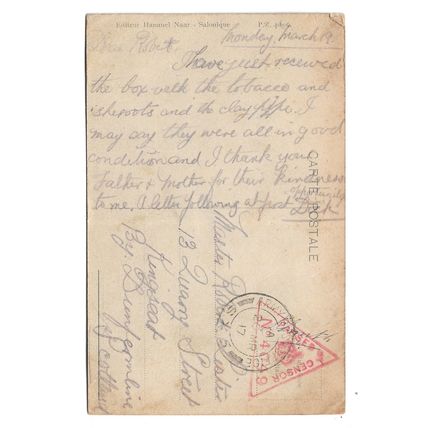 Editeur Hananel Naar - Salonique
Monday, March 19.
Dear Robert
I have just received
the box with the tobacco and
sheroots and the clay pipe. I
may say they were all in good
condition and I thank your
Father & Mother for their kindness
to me. A letter following at first
opportunity
Dick
CARTE POSTALE
Master Robert
13 Quarry Street
Kingseat
By. Dunfermline
Scotland
PASSED
CENSOR